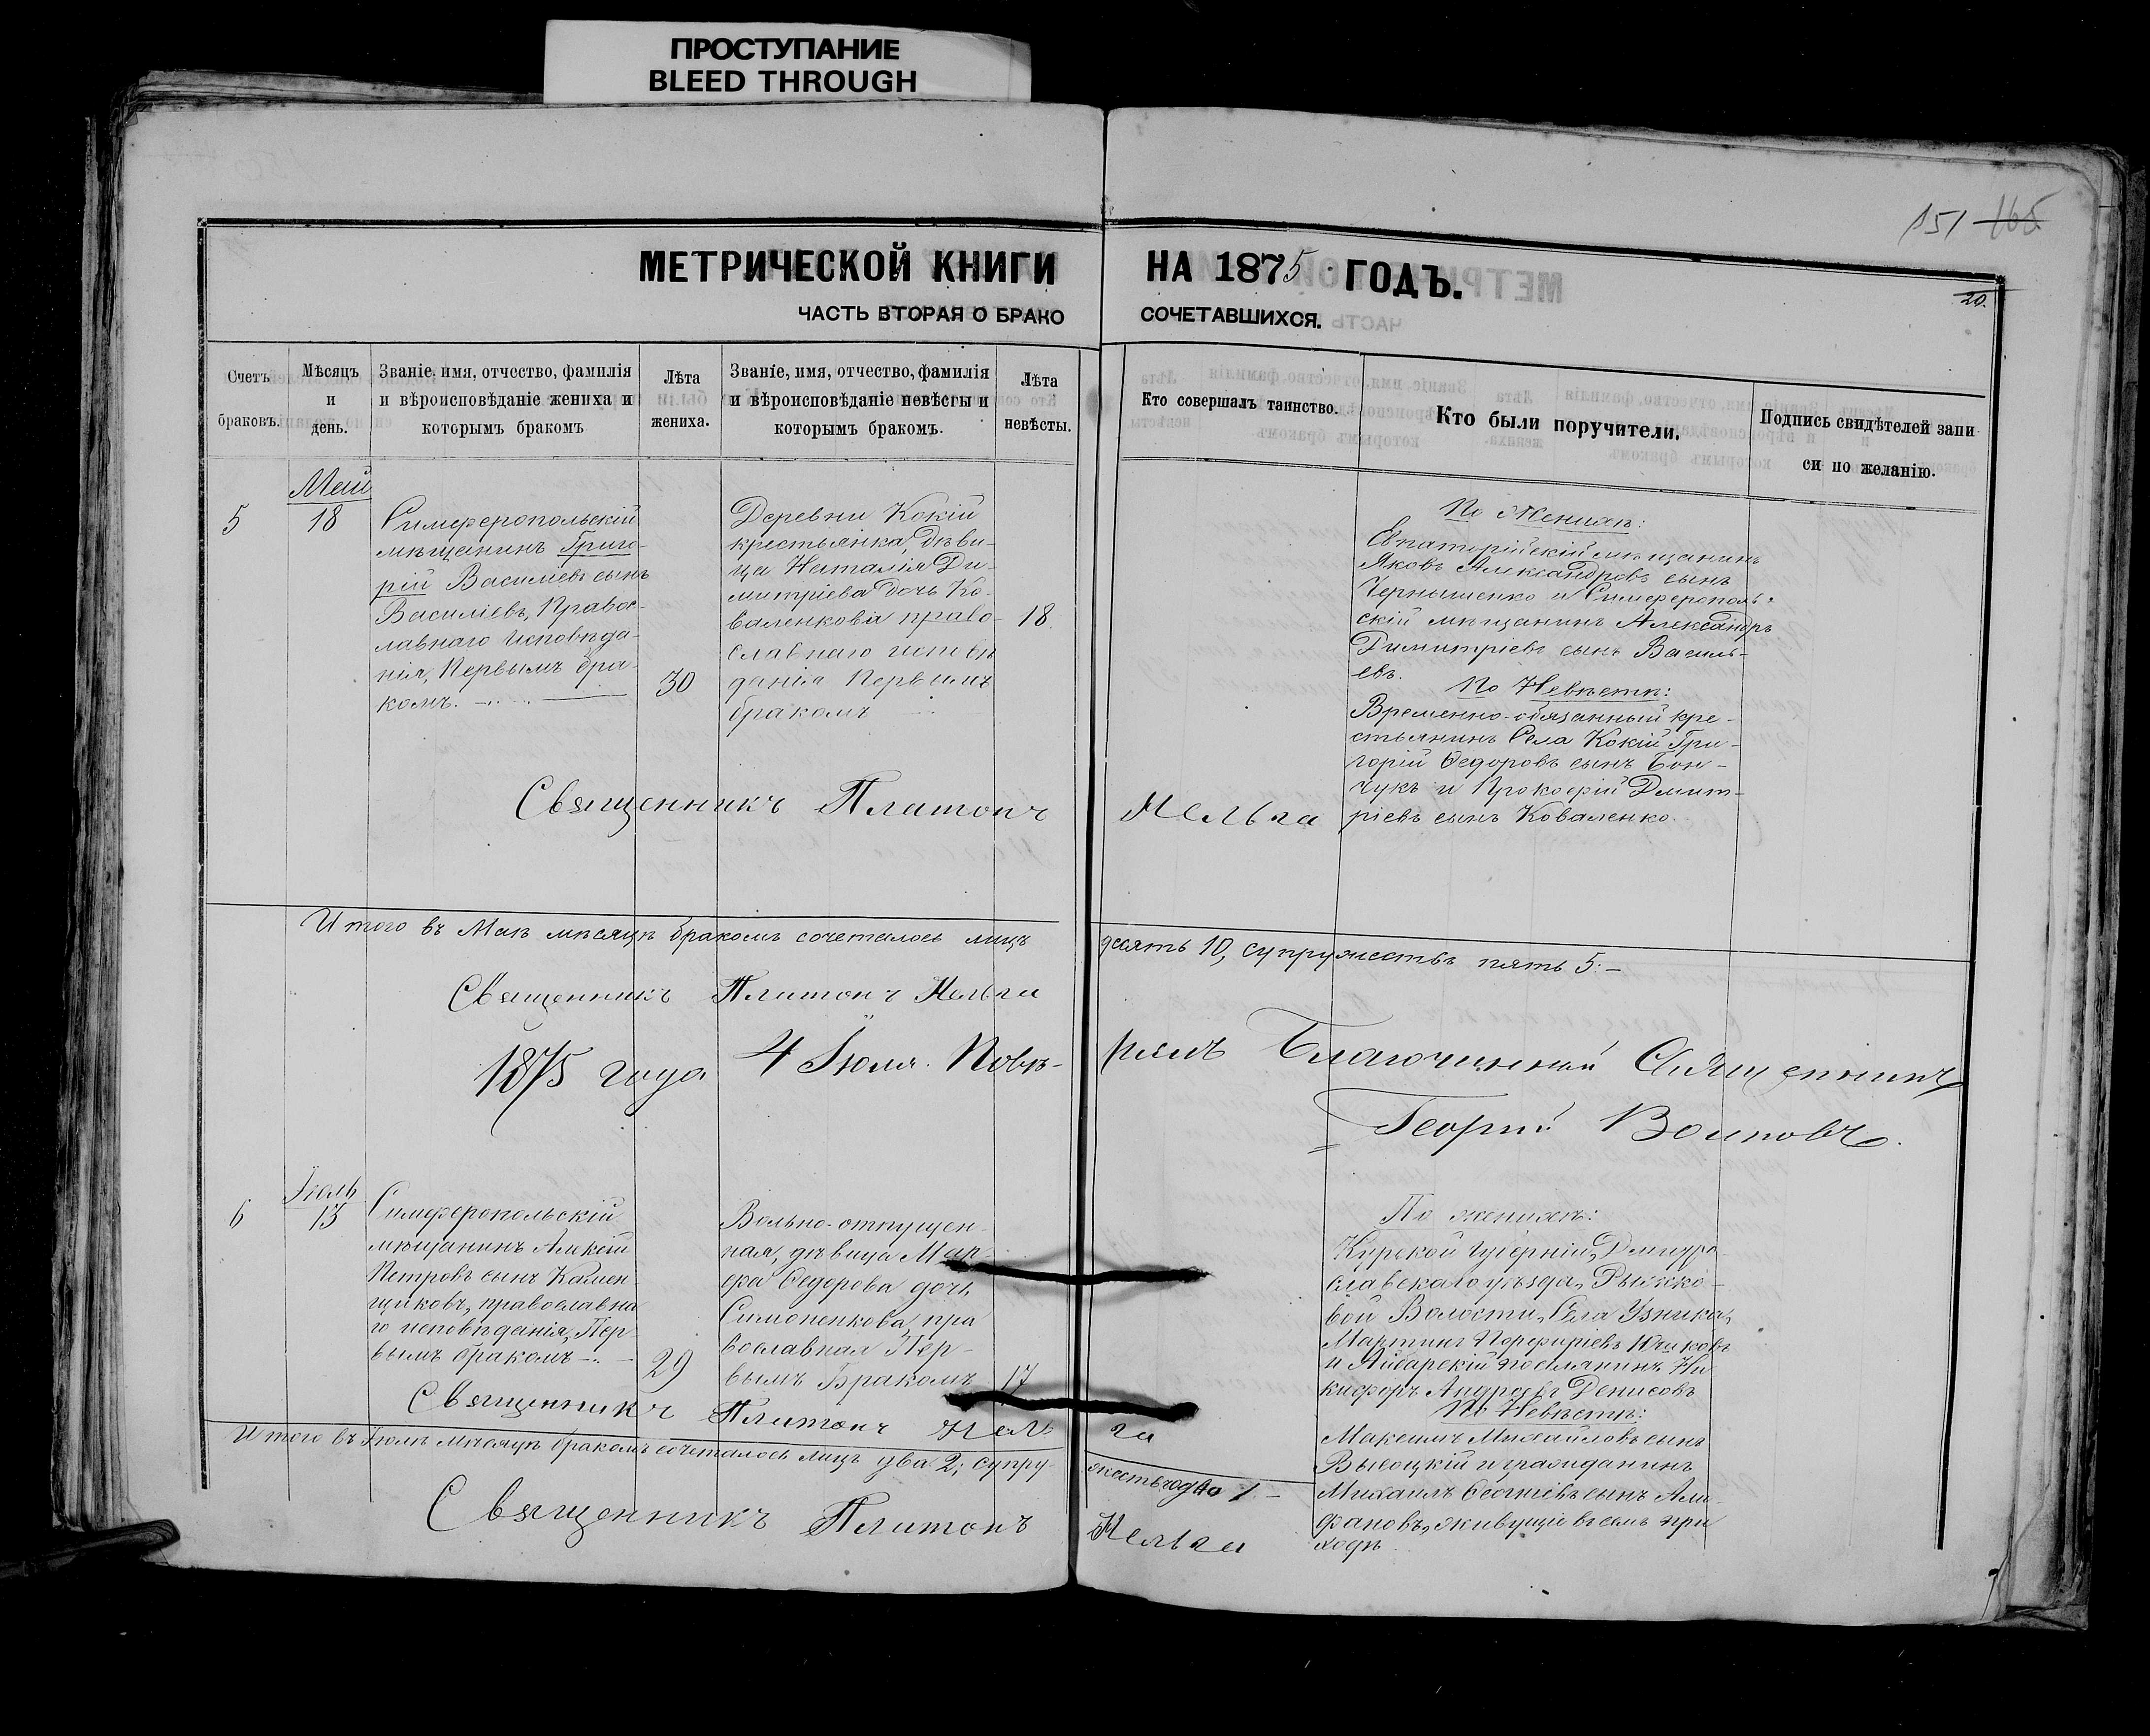 ПРОСТУПАНИЕ
BLEED THROUGH
151 165
20.
МЕТРИЧЕСКОЙ КНИГИ НА 1875 ГОДЪ.
ЧАСТЬ ВТОРАЯ О БРАКО СОЧЕТАВШИХСЯ.
Счетъ
браковъ.
Мѣсяцъ
и
день.
Званіе, имя, отчество, фамилія
и вѣроисповѣданіе жениха и
которымъ бракомъ
Лѣта
жениха.
Званіе, имя, отчество, фамилія
и вѣроисповѣданіе невѣсты и
которымъ бракомъ.
Лѣта
невѣсты.
Кто совершалъ таинство.
Кто были поручители.
Подпись свидѣтелей запи
си по желанію.
Май
5
18
Симферопольскій
мѣщанинъ Григо-
рій Василіевъ сынъ
Василіевъ, Правос-
лавнаго исповѣда-
нія, Первымъ бра-
комъ.
30
Деревни Кокій
крестьянка, дѣви-
ца Наталія Ди-
митріева дочь Ко-
валенкова право-
славнаго исповѣ
данія Первымъ
бракомъ
18.
По Женихѣ:
Евпаторійскій мѣщанинъ
Яковъ Александровъ сынъ
Чернышенко и Симферополь-
скій мѣщанинъ Александръ
Димитріевъ сынъ Василь-
евъ.
По Невѣстѣ:
Временно-обязанный кре-
стьянинъ Села Кокій Гри-
горій Федоровъ сынъ Бон-
чукъ и Прокофій Дмит-
ріевъ сынъ Коваленко
Священникъ Платонъ Мельга
Итого въ Маѣ мѣсяцѣ бракомъ сочеталось лицъ десять 10, супружествъ пять 5.-
Священникъ Платонъ Мельга
1875 года 4 Іюля. Повѣ- рялъ Благочинный Священникъ
Георгій Воиновъ.
Іюль
6
13
Симферопольскій
мѣщанинъ Алексій
Петровъ сынъ Камен-
щиковъ, православна
го исповѣданія, Пер
вымъ бракомъ
29
Вольно-отпущен-
ная, дѣвица Мар-
фа Федорова дочь
Симоненкова, пра
вославная Пер-
вымъ Бракомъ
17
По женихѣ:
Курской Губерніи,
славскаго уѣзда,
вой Волости, Села
Мартинъ Порфиріевъ
и Айбарскій поселянинъ Ни
кифоръ Андреевъ Денисовъ
По Невѣстѣ:
Максимъ Михайловъ сынъ
Высоцкій и гражданинъ
Михаилъ сынъ
живущіе въ семъ при
ходѣ
Священникъ Платонъ Мель га
Итого въ Іюлѣ мѣсяцѣ бракомъ сочеталось лицъ два 2; супру- жествъ одно 1 -
Священникъ Платонъ Мельга